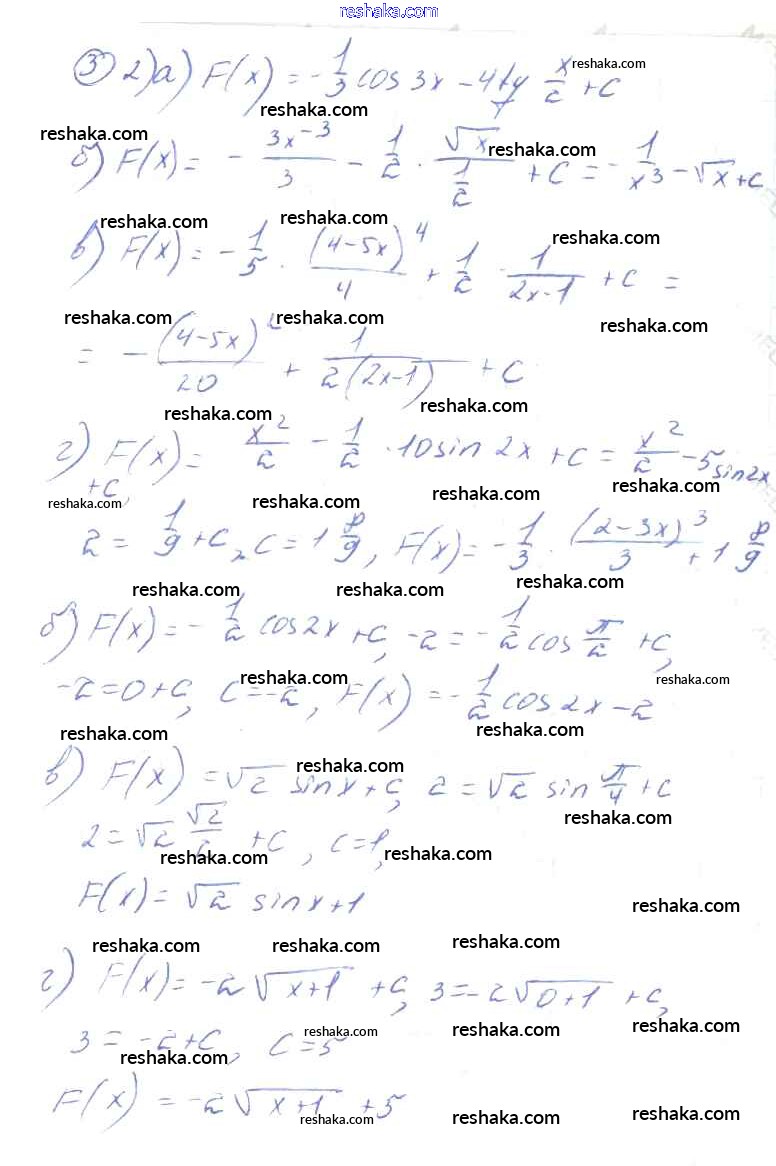 reshaka.com
③ 2)а) F(x) = -1/3 cos 3x - 4tg x/2 + C
reshaka.com
reshaka.com
reshaka.com
б) F(x) = - 3x^-3/3 - 1/2 · √x/(1/2) + C = - 1/x^3 - √x + C
reshaka.com
reshaka.com reshaka.com
reshaka.com
в) F(x) = -1/5 · (4-5x)^4/4 + 1/2 · 1/(2x-1) + C =
reshaka.com reshaka.com reshaka.com
= - (4-5x)/20 + 1/(2(2x-1)) + C
reshaka.com reshaka.com
г) F(x) = x^2/2 - 1/2 · 10 sin 2x + C = x^2/2 - 5 sin 2x
+C
reshaka.com reshaka.com reshaka.com reshaka.com
2 = 1/9 + C, C = 1 8/9, F(x) = -1/3 · (2-3x)^3/3 + 1 8/9
reshaka.com reshaka.com reshaka.com
б) F(x) = -1/2 cos 2x + C, -2 = -1/2 cos π/2 + C,
reshaka.com reshaka.com
-2 = 0 + C, C = -2, F(x) = -1/2 cos 2x - 2
reshaka.com reshaka.com
reshaka.com
в) F(x) = √2 sin x + C, 2 = √2 sin π/4 + C
reshaka.com
2 = √2 √2/2 + C, C = 1,
reshaka.com reshaka.com
F(x) = √2 sin x + 1
reshaka.com
reshaka.com reshaka.com reshaka.com
г) F(x) = -2√(x+1) + C, 3 = -2√(0+1) + C,
reshaka.com reshaka.com reshaka.com
3 = -2 + C, C = 5
reshaka.com
F(x) = -2√(x+1) + 5
reshaka.com reshaka.com reshaka.com